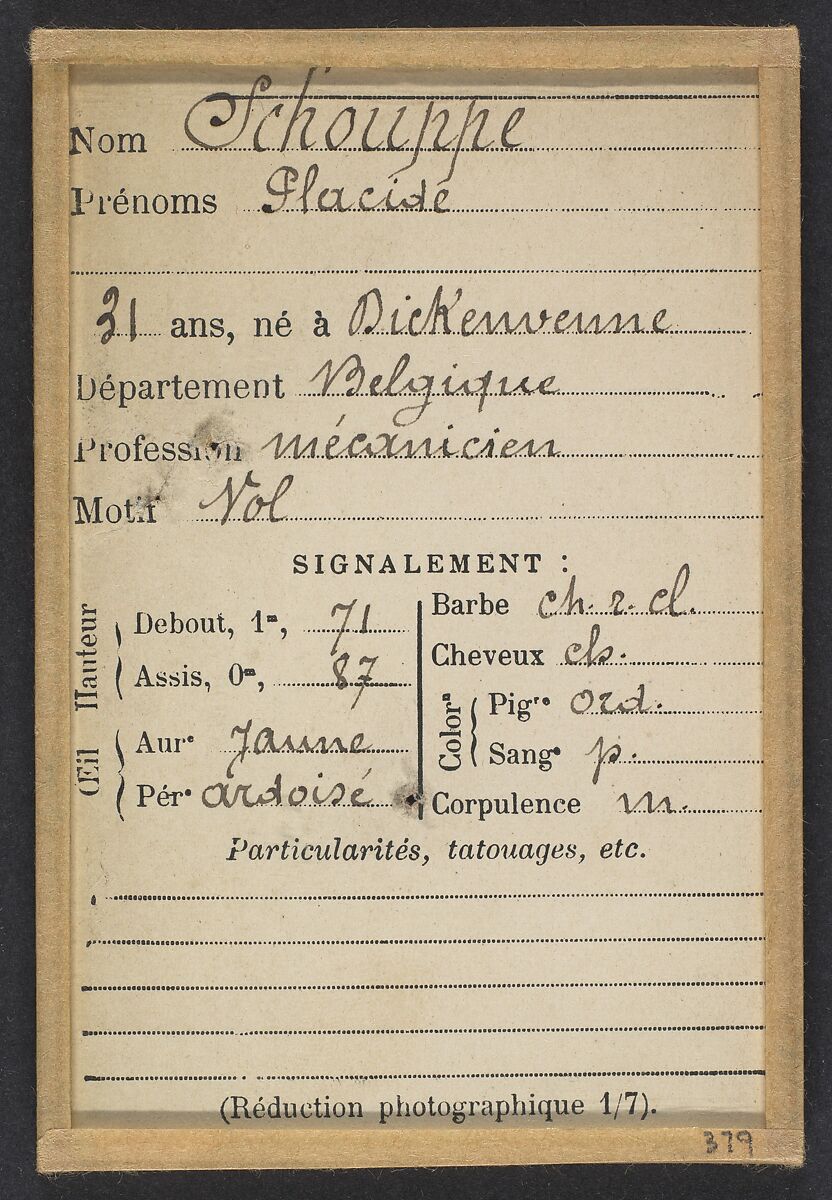 Nom Schouppe
Prénoms Placide
31 ans, né à Dickenvenne
Département Belgique
Profession mécanicien
Motif Vol
SIGNALEMENT :
Hauteur
Debout, 1m, 71
Assis, 0m, 87
Œil
Aure Jaune
Pére ardoisé
Barbe ch. r. cl.
Cheveux ch.
Coloron
Pigre ord.
Sange p.
Corpulence m.
Particularités, tatouages, etc.
(Réduction photographique 1/7).
379